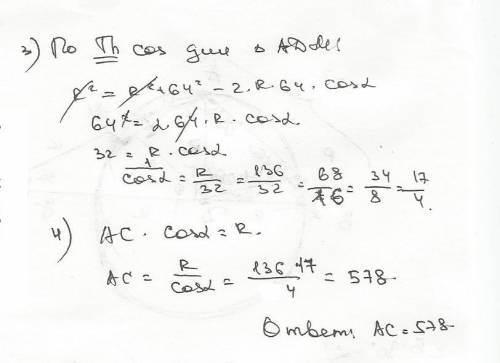 3) По Th cos для △ ADM
R² = R² + 64² - 2·R·64·cosα
64² = 2·64·R·cosα
32 = R·cosα
1/cosα = R/32 = 136/32 = 68/16 = 34/8 = 17/4.
4) AC·cosα = R.
AC = R/cosα = 136·17/4 = 578.
Ответ: AC = 578.